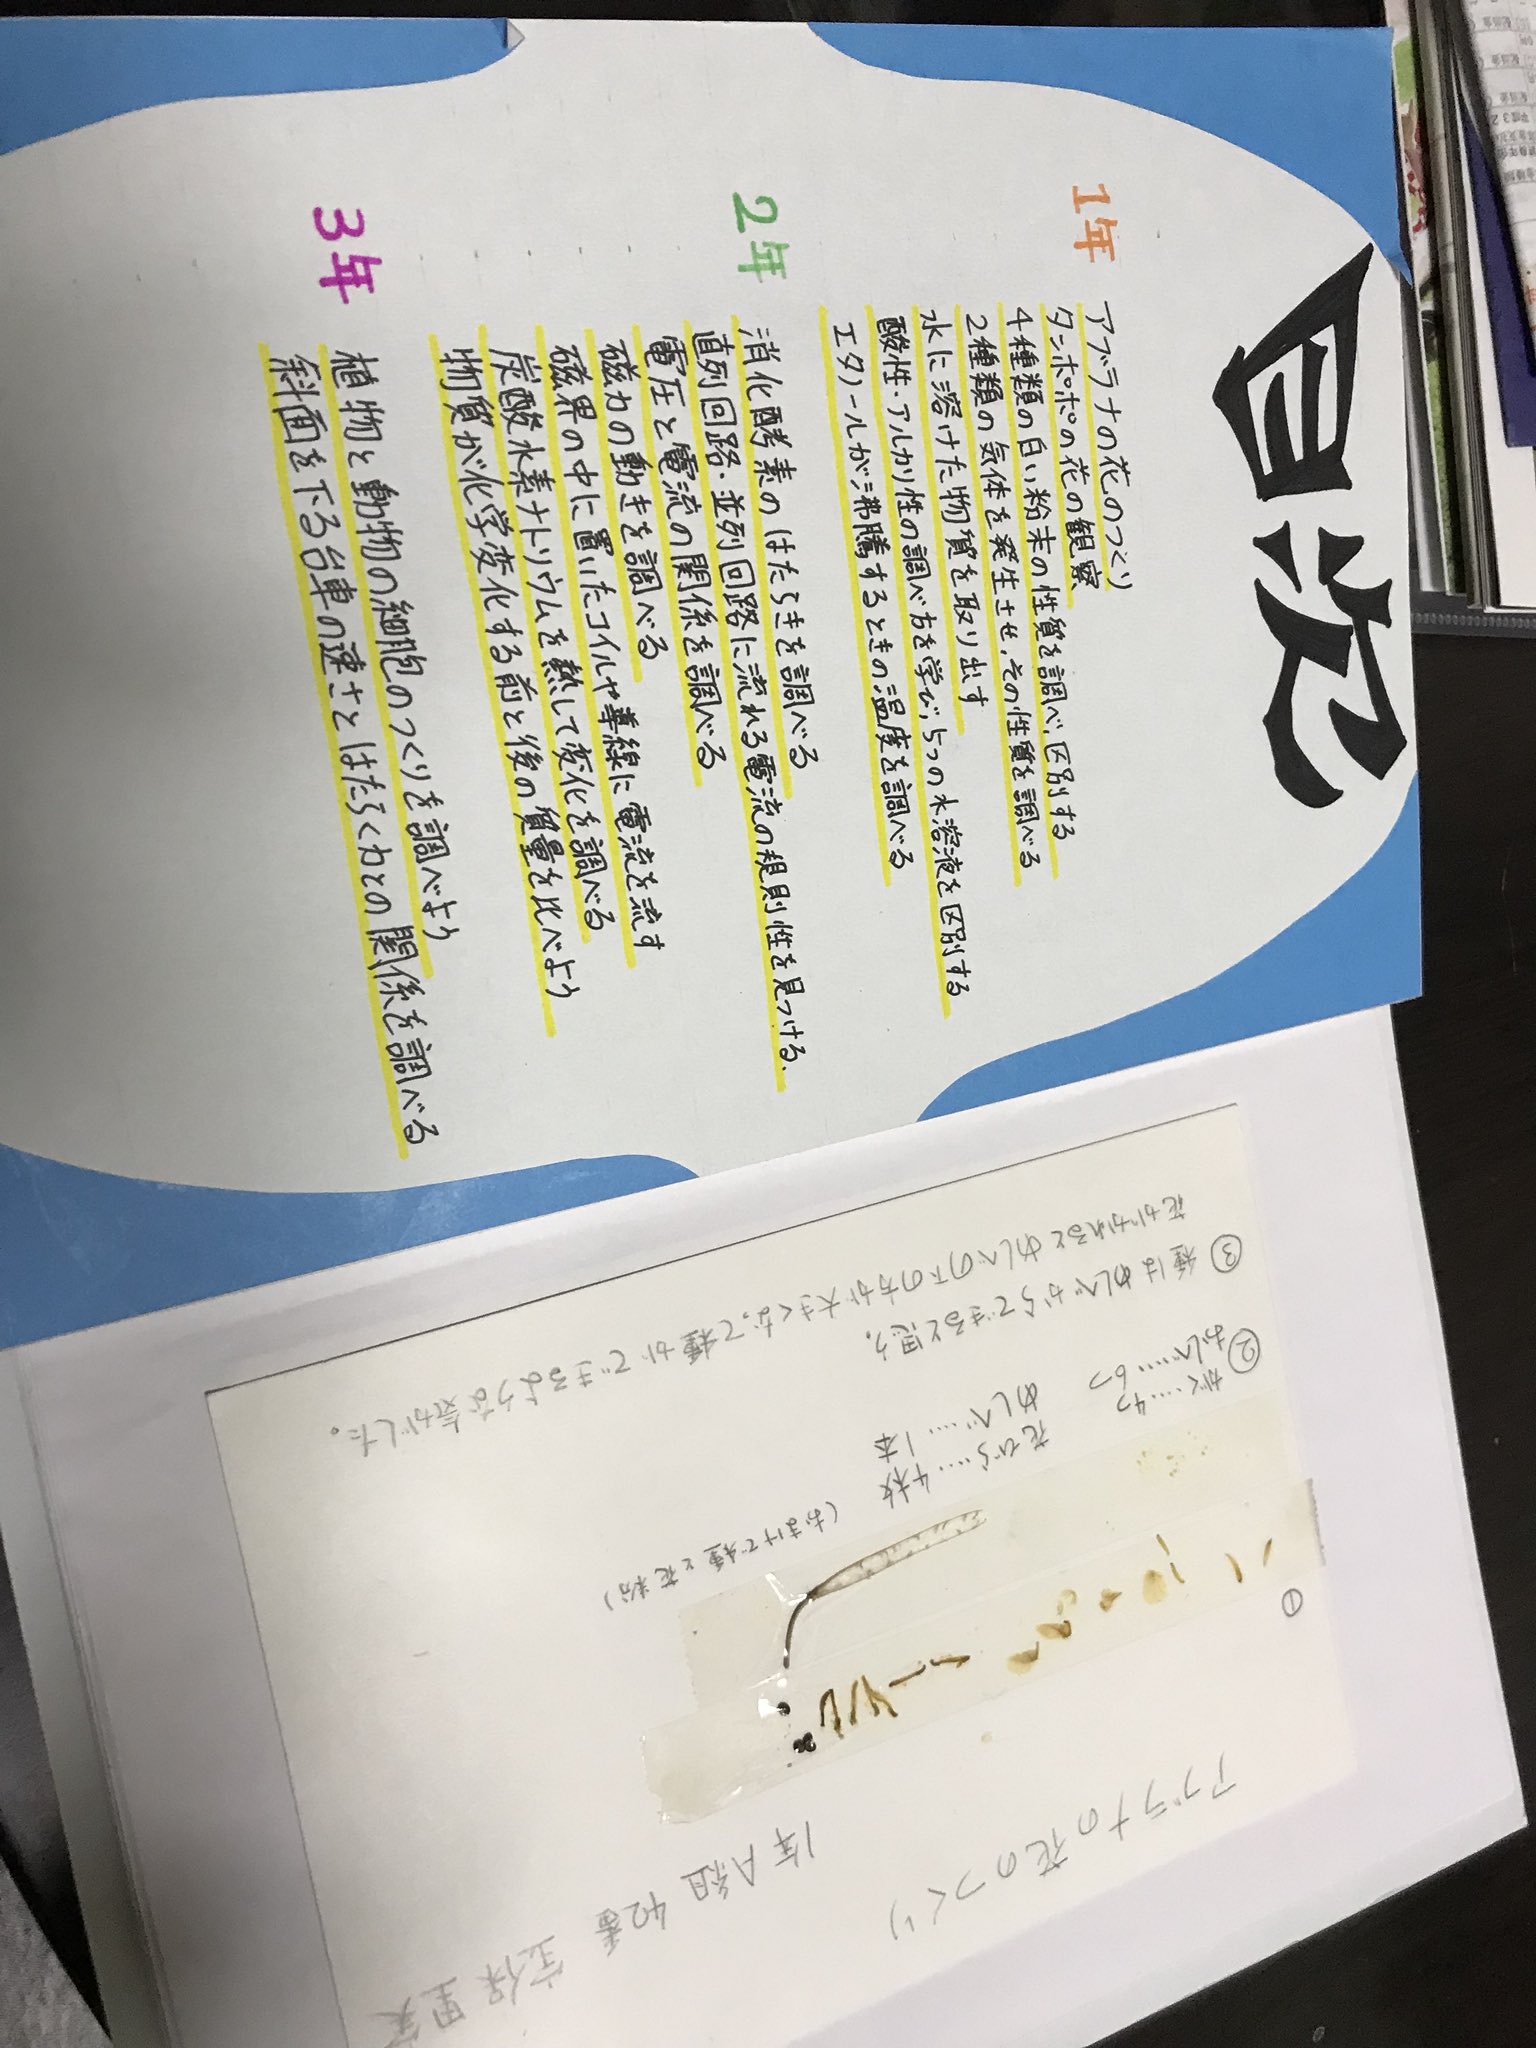 目次
1年
アブラナの花のつくり
タンポポの花の観察
4種類の白い粉末の性質を調べ、区別する
2種類の気体を発生させ、その性質を調べる
水に溶けた物質を取り出す
酸性・アルカリ性の調べ方を学び、5つの水溶液を区別する
エタノールが沸騰するときの温度を調べる
2年
消化酵素のはたらきを調べる
直列回路・並列回路に流れる電流の規則性を見つける.
電圧と電流の関係を調べる
磁力の動きを調べる
磁界の中に置いたコイルや導線に電流を流す
炭酸水素ナトリウムを熱して変化を調べる
物質が化学変化する前と後の質量を比べよう
3年
植物と動物の細胞のつくりを調べよう
斜面を下る台車の速さとはたらく力との関係を調べる
アブラナの花のつくり
1年A組 42番 宝保里実
①
(おまけで種と花粉)
② がく……4つ 花びら……4枚
おしべ……6つ めしべ……1本
③ 種はめしべからできると思う。
花がかれるとめしべの下の方が大きくなって種ができるような気がした。